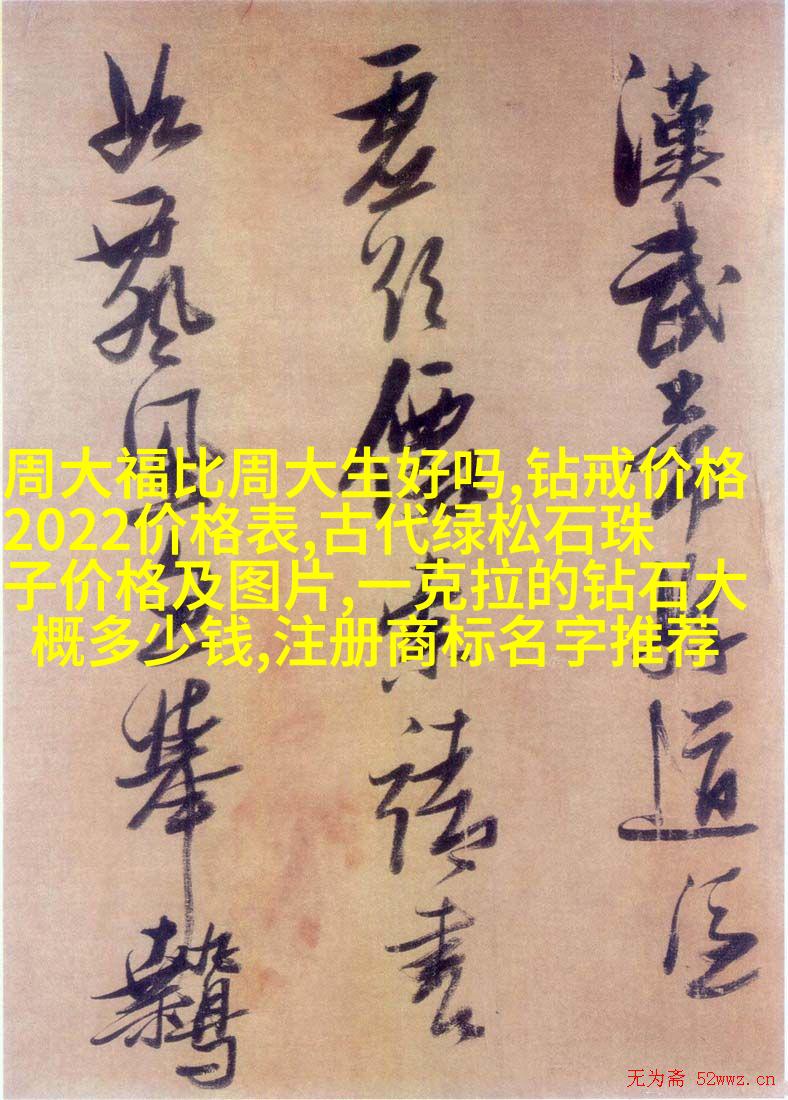 漢武帝好道
虚欲價請書
如飄風忽舉鷙
周大福比周大生好吗,钻戒价格
2022价格表,古代绿松石珠
子价格及图片,一克拉的钻石大
概多少钱,注册商标名字推荐
无为斋 52wwz.cn